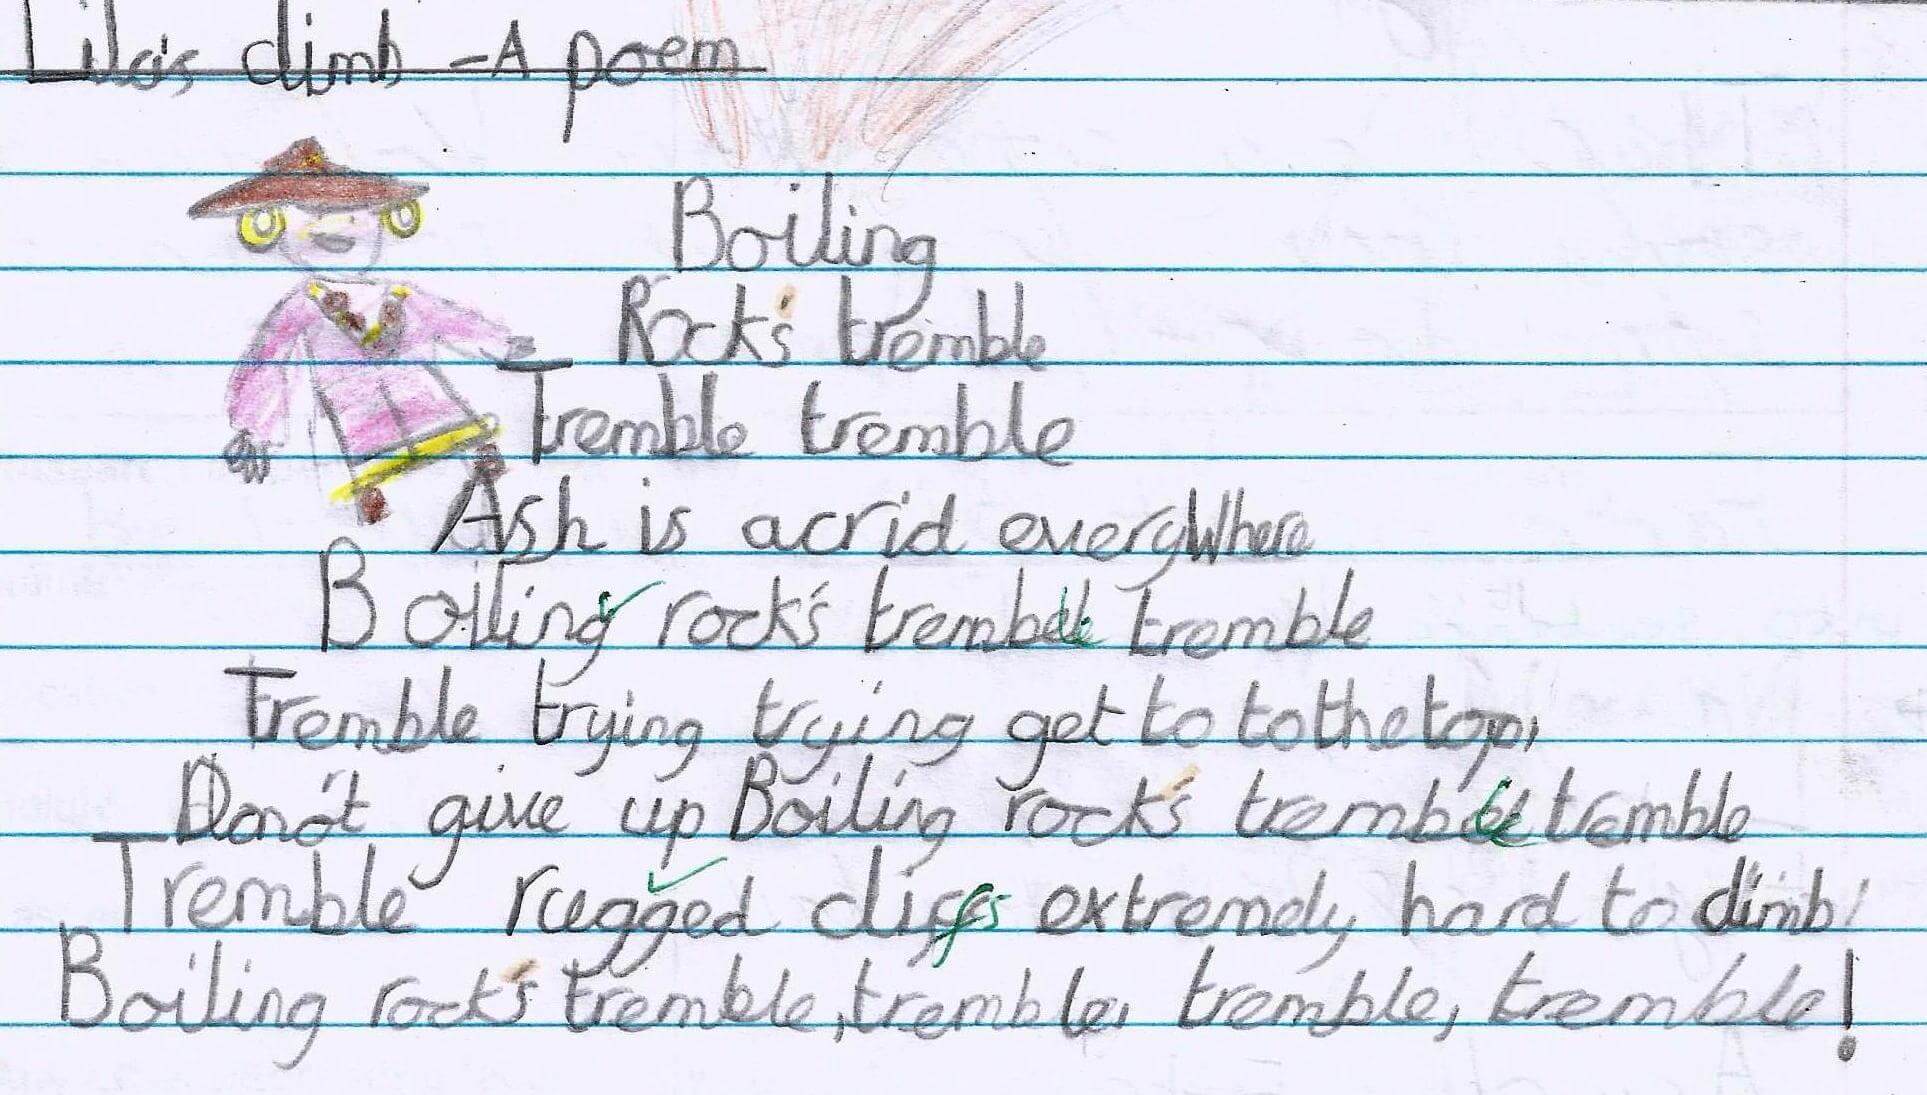 Lila's climb - A poem
Boiling
Rock's tremble
Tremble tremble
Ash is acrid everyWhere
Boiling rock's tremble tremble
Tremble trying trying get to to the top,
Don't give up Boiling rock's tremble tremble
Tremble rugged cliffs extremely hard to climb!
Boiling rock's tremble, tremble, tremble, tremble!